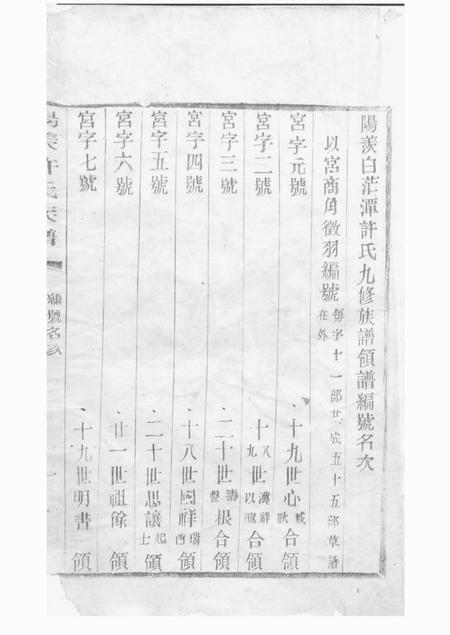 陽羨白茫潭許氏九修族譜領譜編號名次
以宮商角徵羽編號 每字十一部共成五十五部草譜在外
宮字元號 十九世心 合領
宮字二號 十八世漢祥 九 以 合領
宮字三號 二十世壽 根合領
宮字四號 十八世國祥 瑞酉 領
宮字五號 二十世思讓 起士 領
宮字六號 廿一世祖餘 領
宮字七號 十九世明書 領
陽羨許氏族譜 編號名次 一